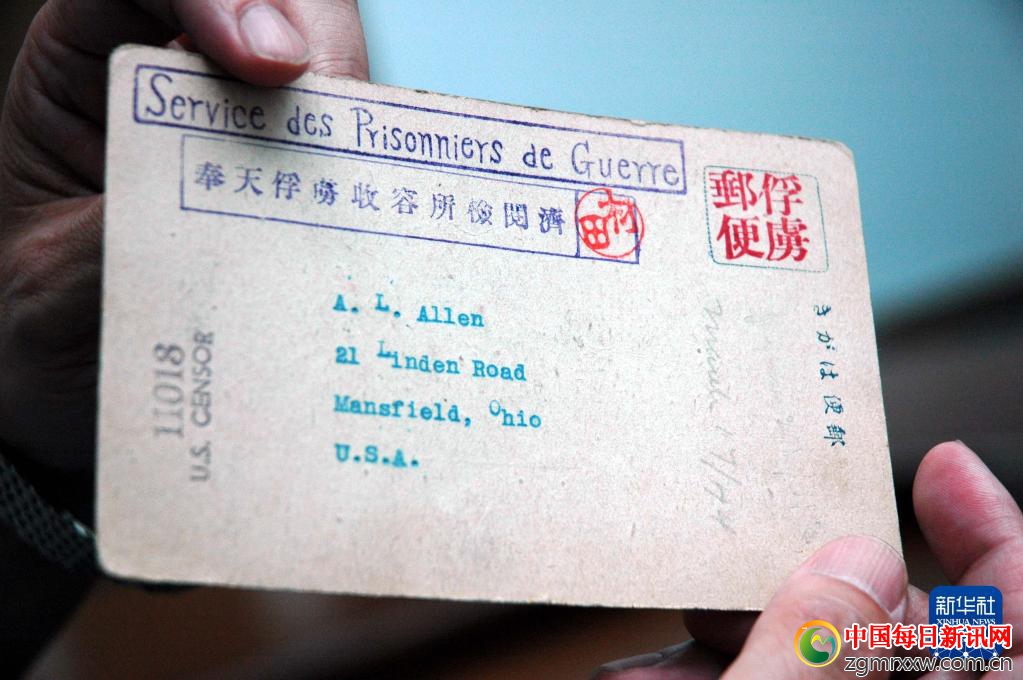 Service des Prisonniers de Guerre
奉天俘虜收容所檢閱濟
村田
俘虜
郵便
きがは便郵
A. L. Allen
21 Linden Road
Mansfield, Ohio
U.S.A.
11018
U.S. CENSOR
17/44
新华社
XINHUA NEWS
中国每日新讯网
zgmrxxw.com.cn